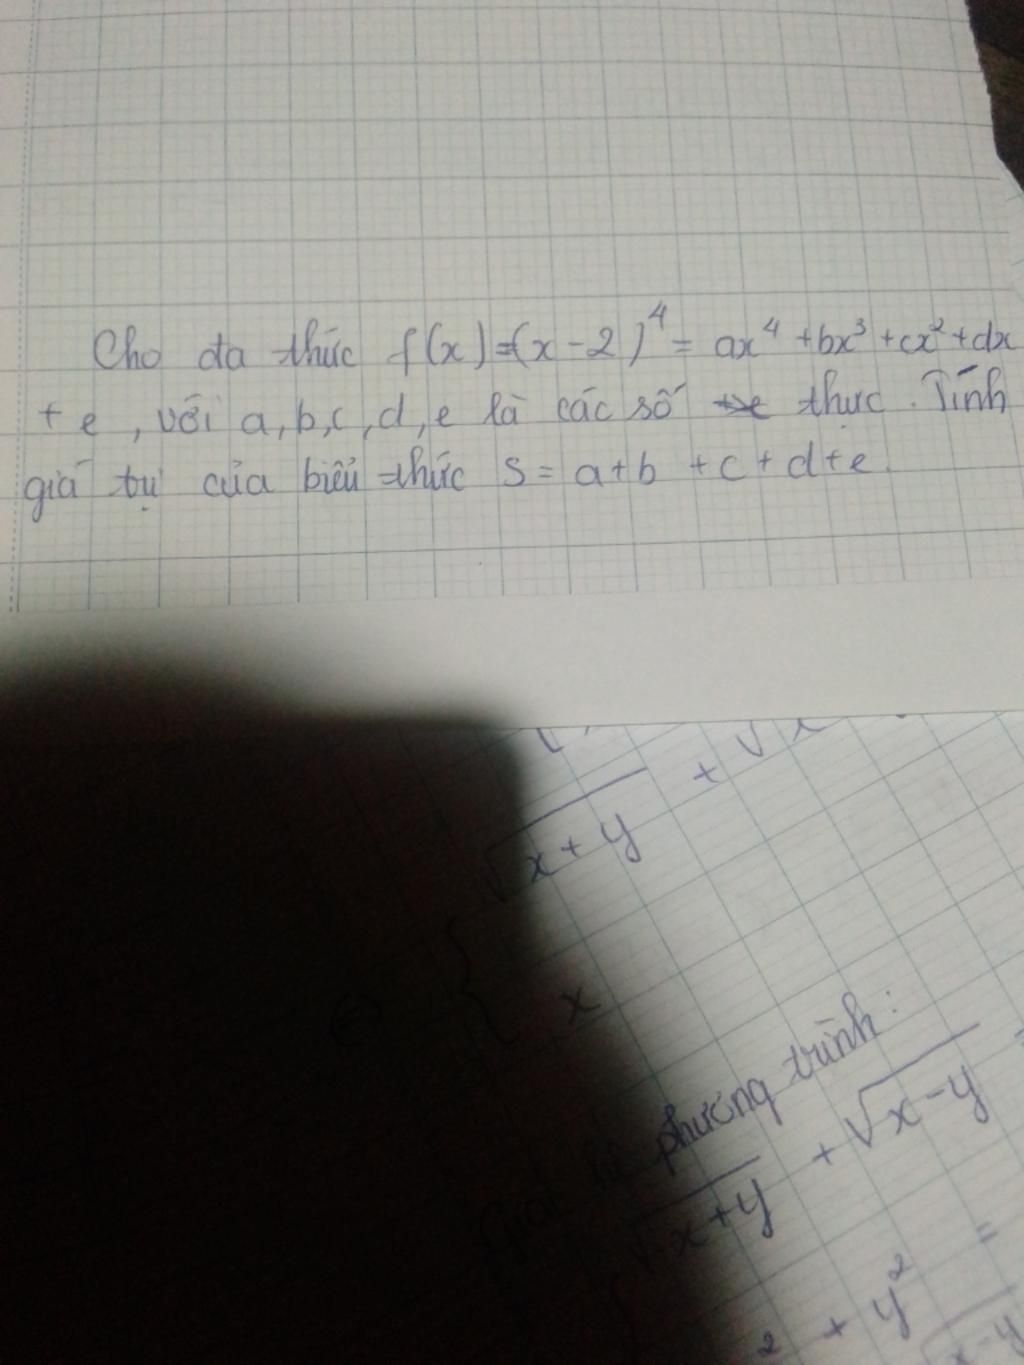 Cho đa thức f(x)=(x-2)⁴ = ax⁴ +bx³ +cx² +dx
+ e, với a,b,c,d,e là các số thực. Tính
giá trị của biểu thức S = a+b +c+d+e
√x+y + √x
{ x
Giải hệ phương trình:
√x+y + √x-y =
² + y² =